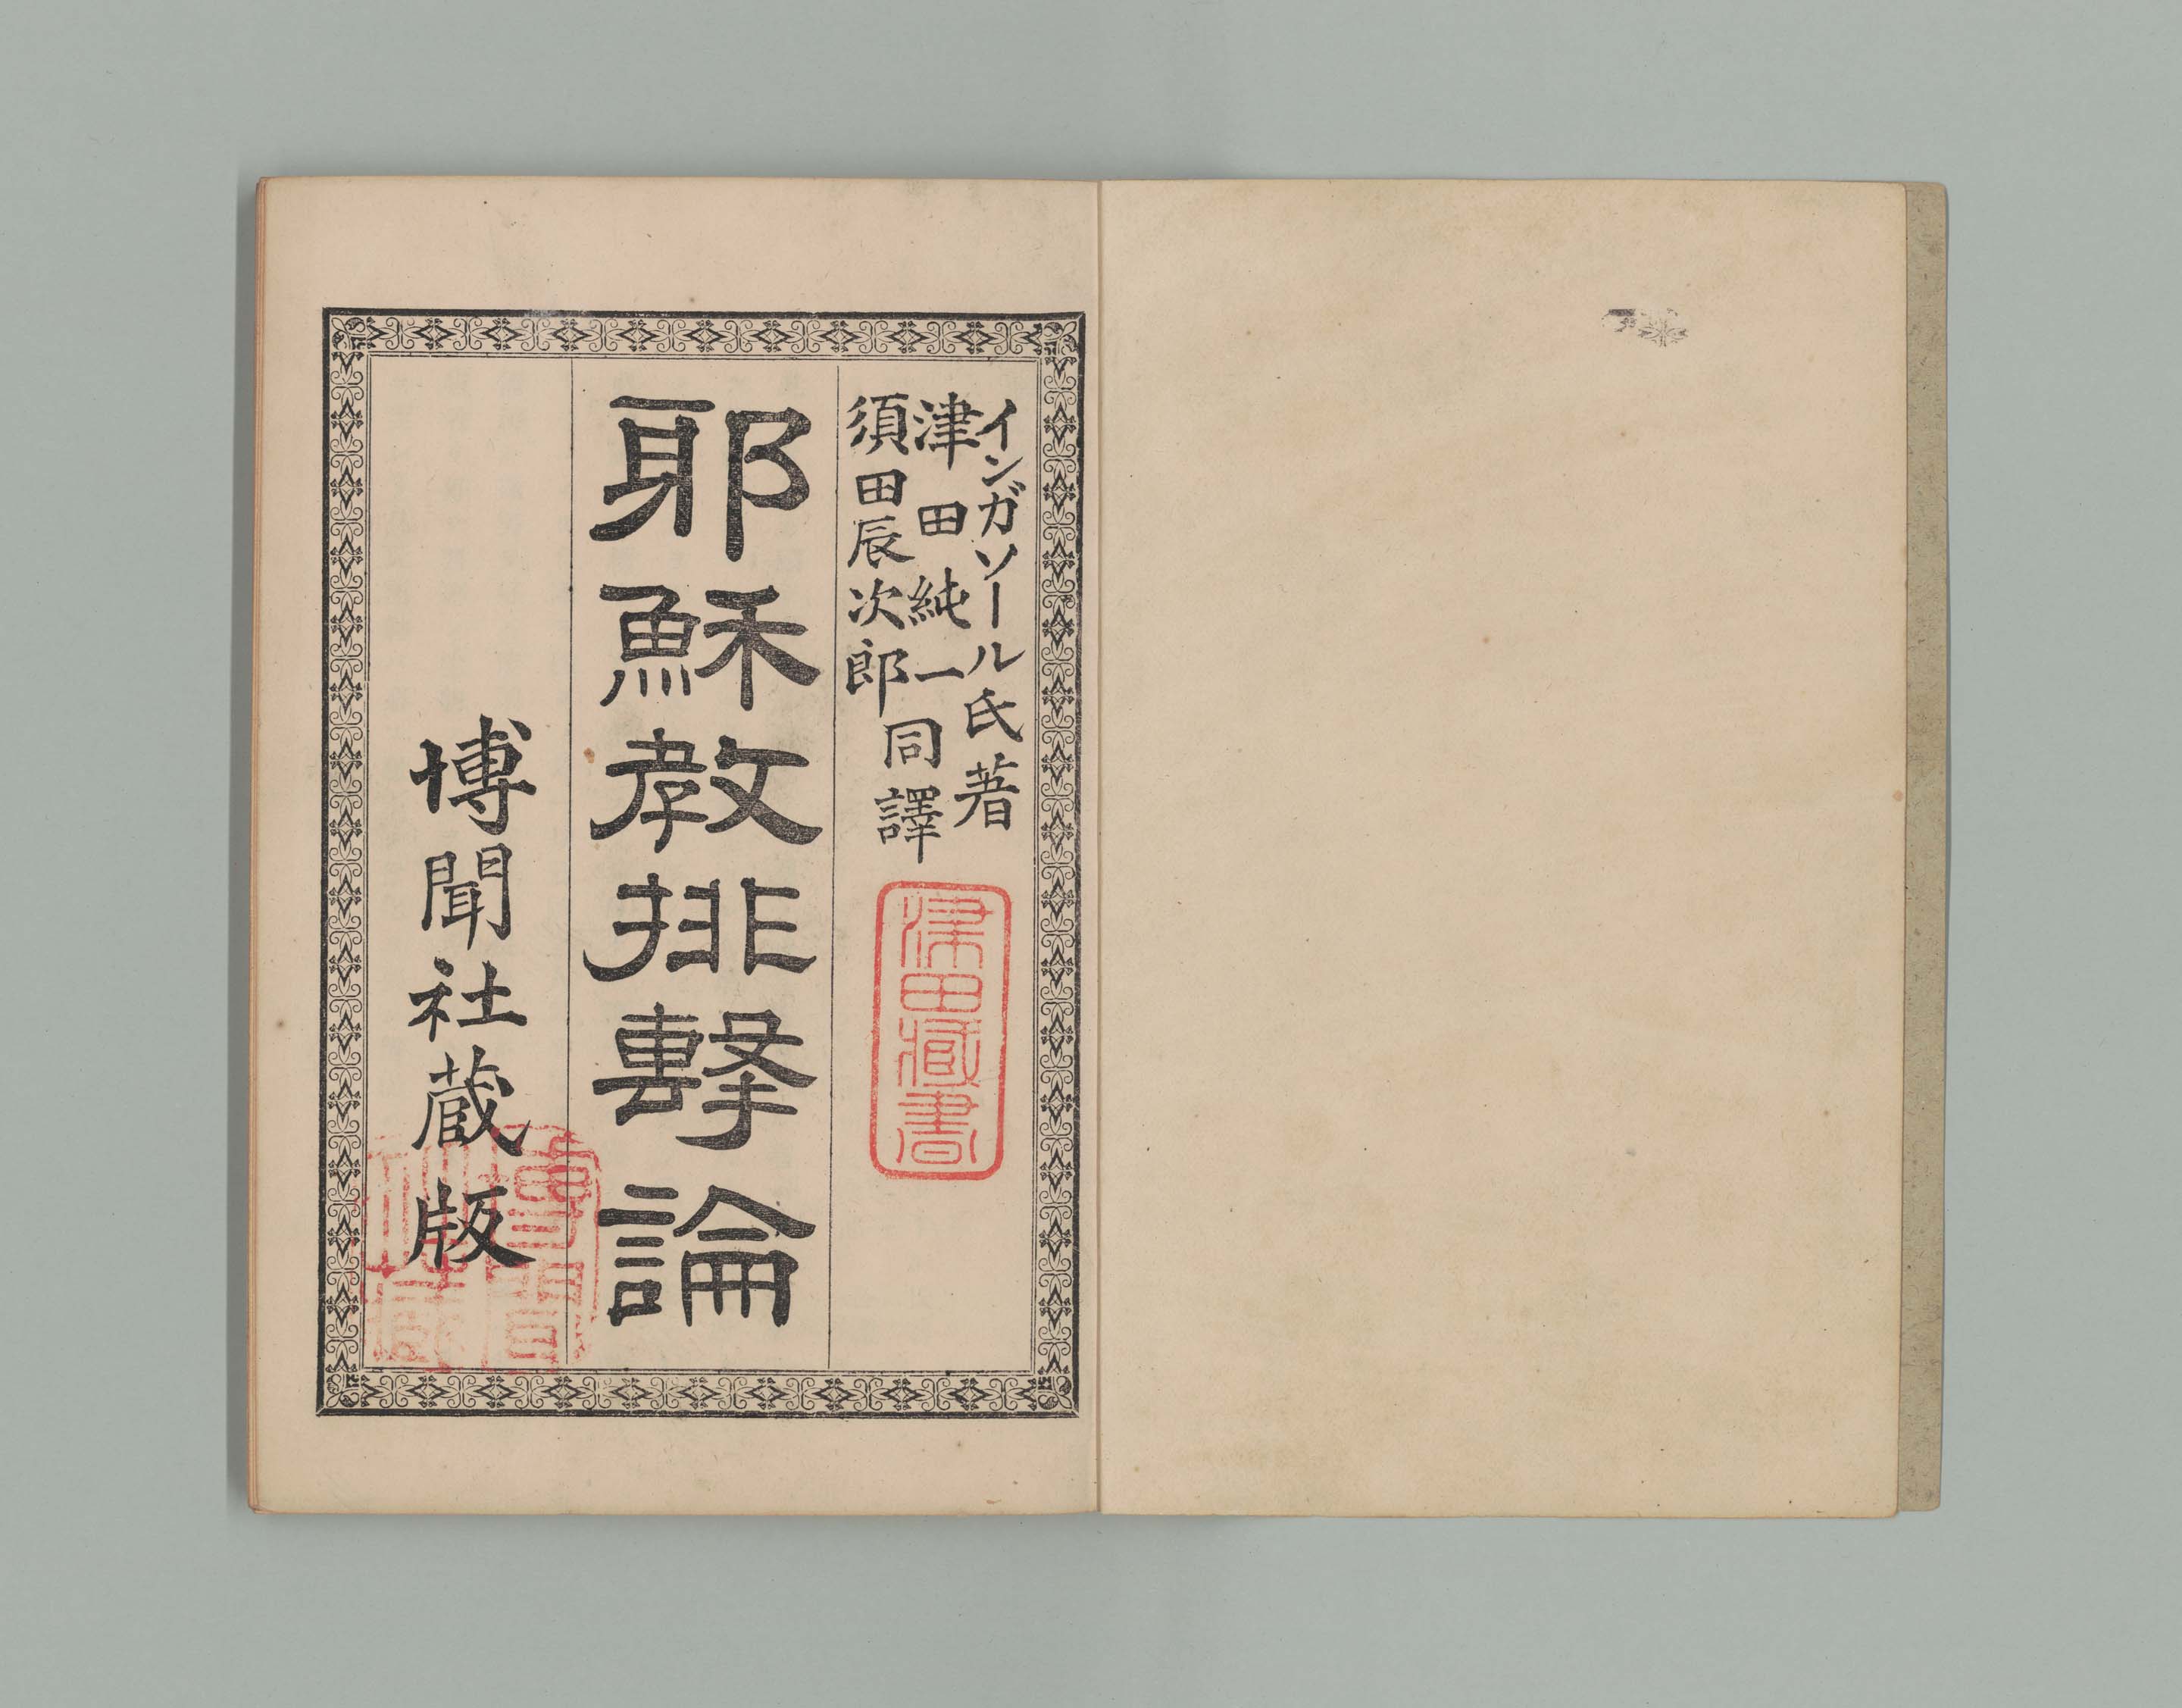 インガソール氏著
津田純一
須田辰次郎
同譯
津田臧書
耶穌教排擊論
博聞社蔵版
博聞社臧